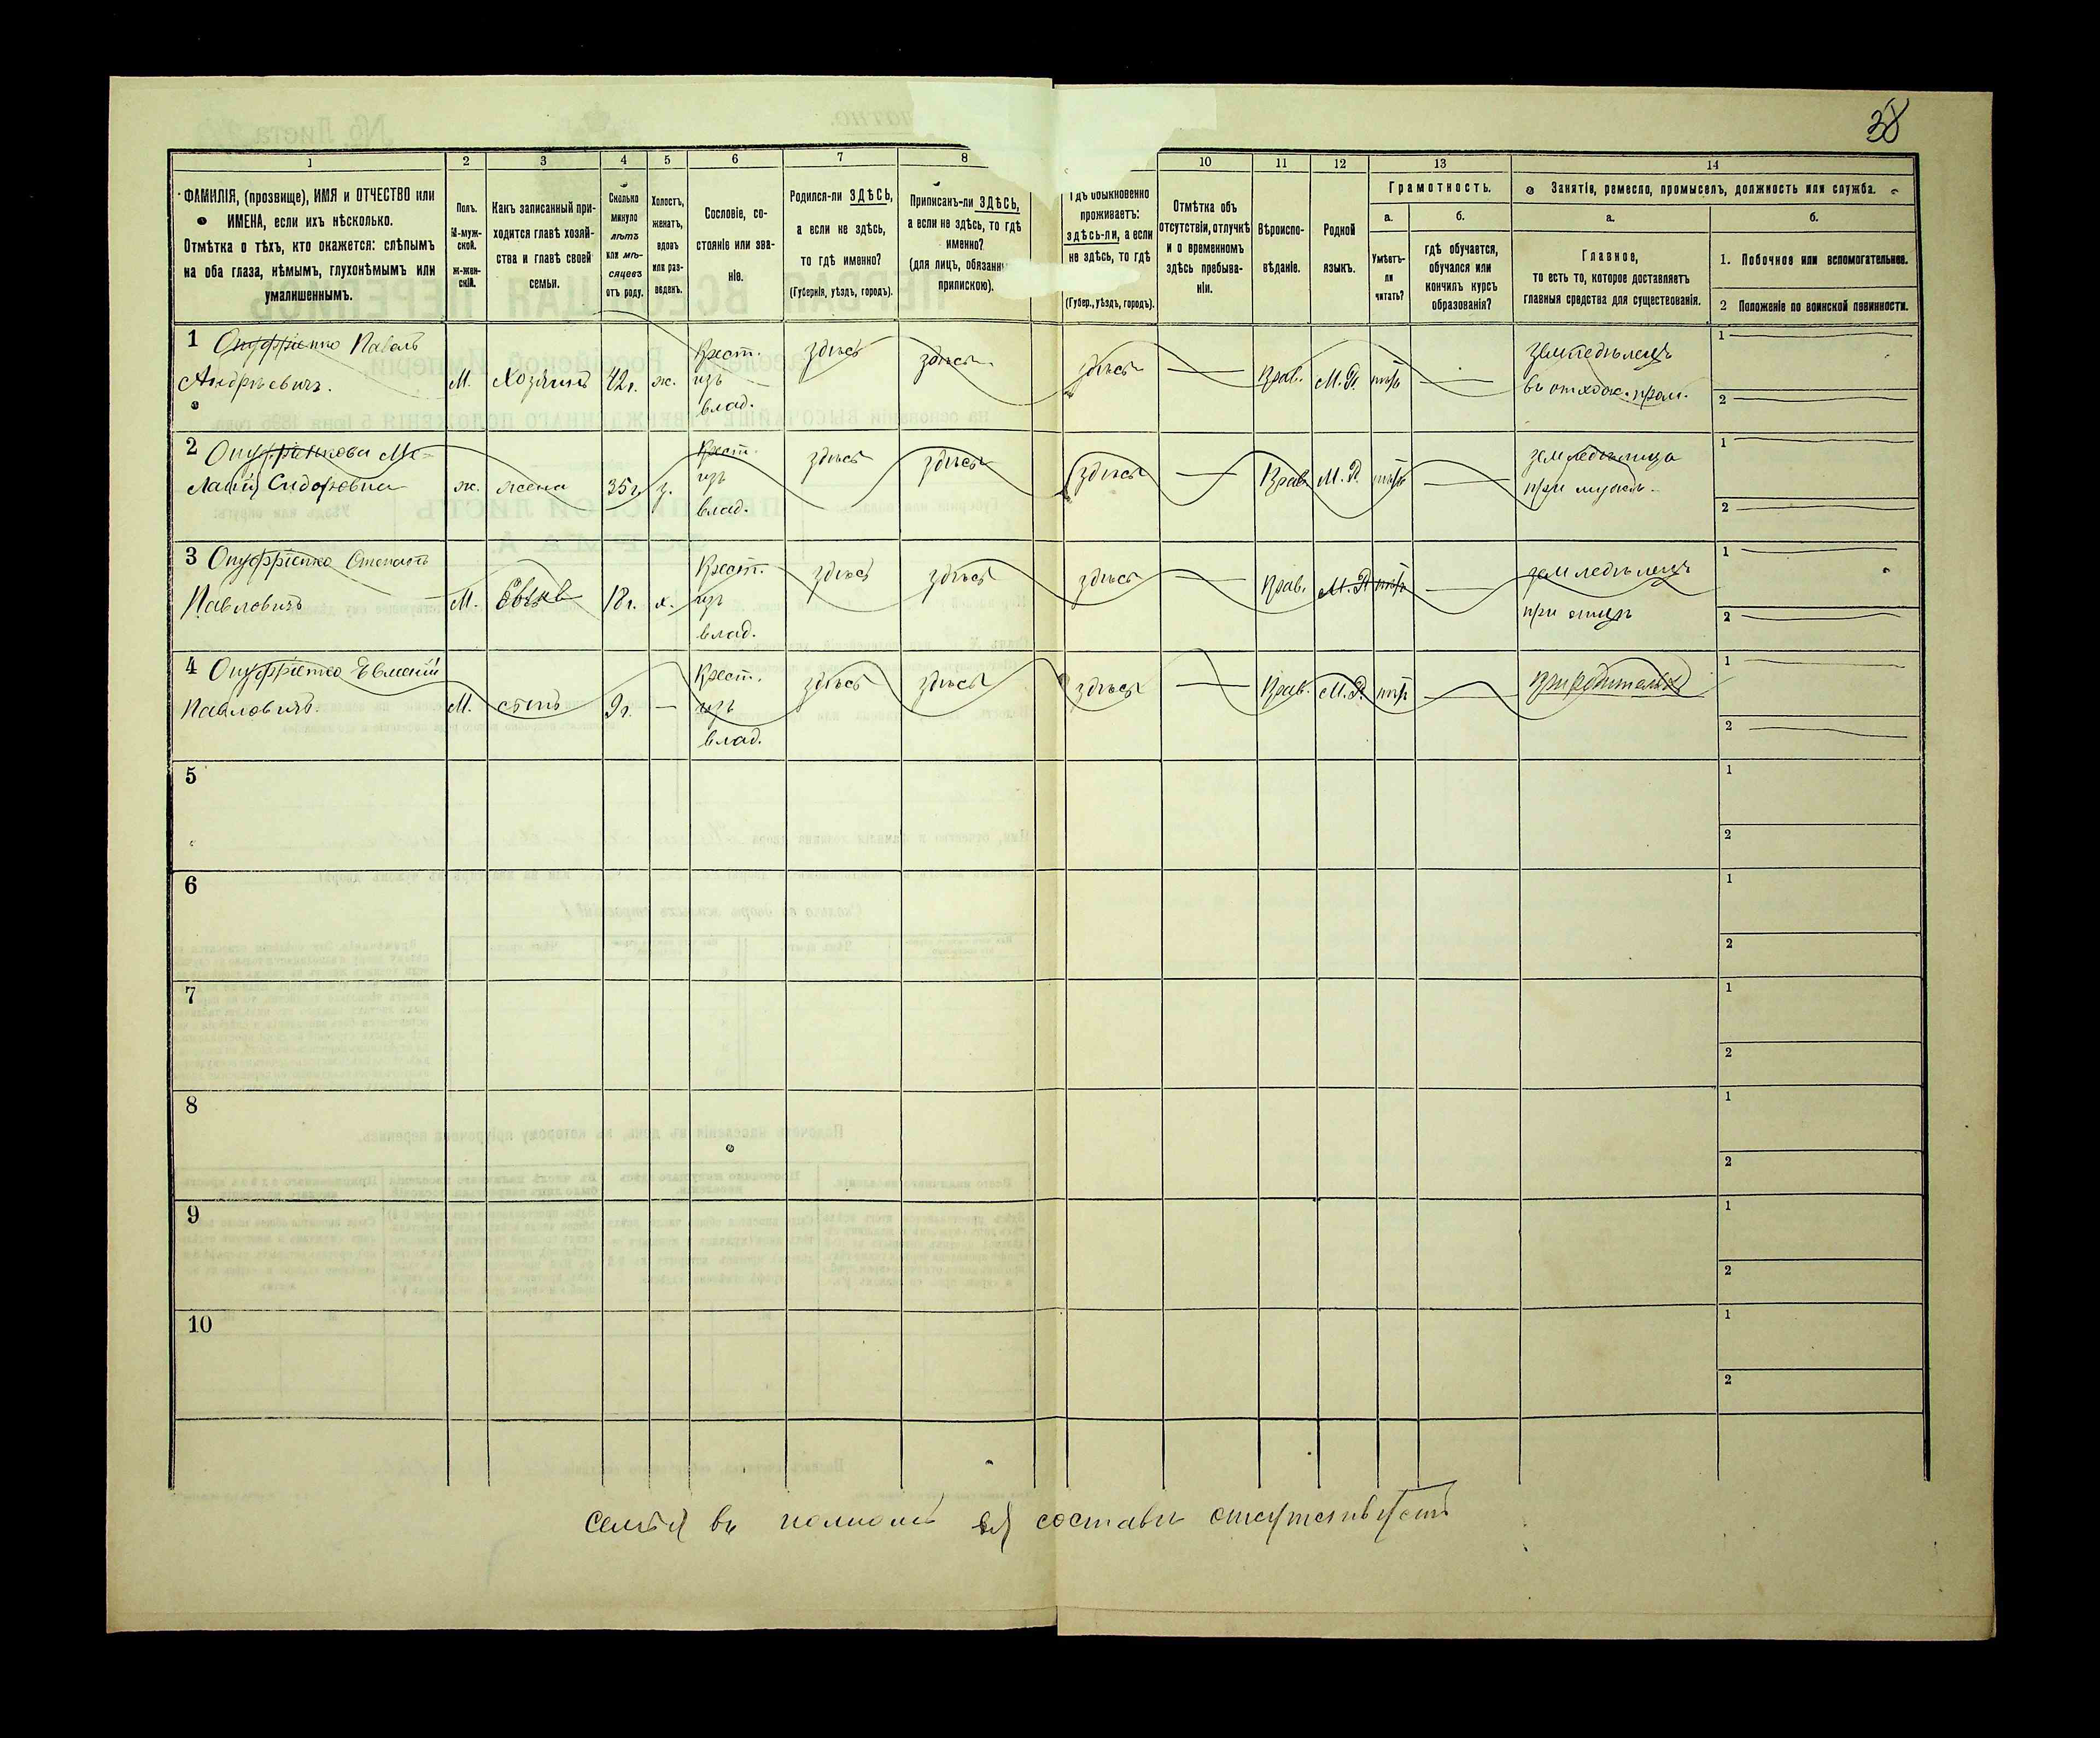 38
1
2
3
4
5
6
7
8
10
11
12
13
14
ФАМИЛІЯ, (прозвище), ИМЯ и ОТЧЕСТВО или
ИМЕНА, если ихъ нѣсколько.
Отмѣтка о тѣхъ, кто окажется: слѣпымъ
на оба глаза, нѣмымъ, глухонѣмымъ или
умалишеннымъ.
Полъ.
М-муж-
ской.
ж-жен-
скій.
Какъ записанный при-
ходится главѣ хозяй-
ства и главѣ своей
семьи.
Сколько
минуло
лѣтъ
или мѣ-
сяцевъ
отъ роду.
Холостъ,
женатъ,
вдовъ
или раз-
веденъ.
Сословіе, со-
стояніе или зва-
ніе.
Родился-ли ЗДѢСЬ,
а если не здѣсь,
то гдѣ именно?
(Губернія, уѣздъ, городъ).
Приписанъ-ли ЗДѢСЬ,
а если не здѣсь, то гдѣ
именно?
(для лицъ, обязанны
припискою).
Гдѣ обыкновенно
проживаетъ:
здѣсь-ли, а если
не здѣсь, то гдѣ
(Губер., уѣздъ, городъ).
Отмѣтка объ
отсутствіи, отлучкѣ
и о временномъ
здѣсь пребыва-
ніи.
Вѣроиспо-
вѣданіе.
Родной
языкъ.
Грамотность.
а.
б.
Умѣетъ-
ли
читать?
гдѣ обучается,
обучался или
кончилъ курсъ
образованія?
Занятіе, ремесло, промыселъ, должность или служба.
а.
б.
Главное,
то есть то, которое доставляетъ
главныя средства для существованія.
1. Побочное или вспомогательное.
2 Положеніе по воинской повинности.
1 Онуфріенко Павелъ
Андрѣевичъ.
М.
Хозяинъ
42 г.
ж.
Крест.
изъ
влад.
здѣсь
здѣсь
здѣсь
—
Прав.
М. Р.
нѣтъ
—
земледѣлецъ
въ отхож. пром.
1
2
2 Онуфріенкова Ме-
ланія Сидоровна
ж.
жена
35 г.
з.
Крест.
изъ
влад.
здѣсь
здѣсь
здѣсь
—
Прав.
М. Р.
нѣтъ
—
земледѣлица
при мужѣ.
1
2
3 Онуфріенко Степанъ
Павловичъ
М.
18 г.
х.
Крест.
изъ
влад.
здѣсь
здѣсь
здѣсь
—
Прав.
М. Р.
нѣтъ
—
земледѣлецъ
при отцѣ
1
2
4 Онуфріенко Евменій
Павловичъ.
М.
сынъ
9 г.
—
Крест.
изъ
влад.
здѣсь
здѣсь
здѣсь
—
Прав.
М. Р.
нѣтъ
—
при родителяхъ
1
2
5
1
2
6
1
2
7
1
2
8
1
2
9
1
2
10
1
2
семья въ полномъ ея составѣ отсутствуетъ